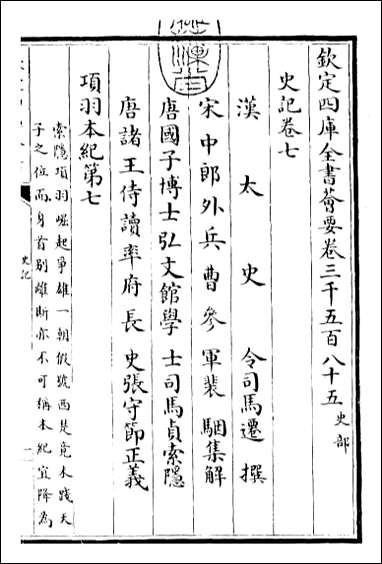 欽定四庫全書薈要卷三千五百八十五 史部
史記卷七
漢太史令司馬遷撰
宋中郎外兵曹參軍裴駰集解
唐國子博士弘文館學士司馬貞索隱
唐諸王侍讀率府長史張守節正義
項羽本紀第七
索隱項羽崛起爭雄一朝假號西楚竟未踐天
子之位而身首別離斯亦不可稱本紀宜降為
史記